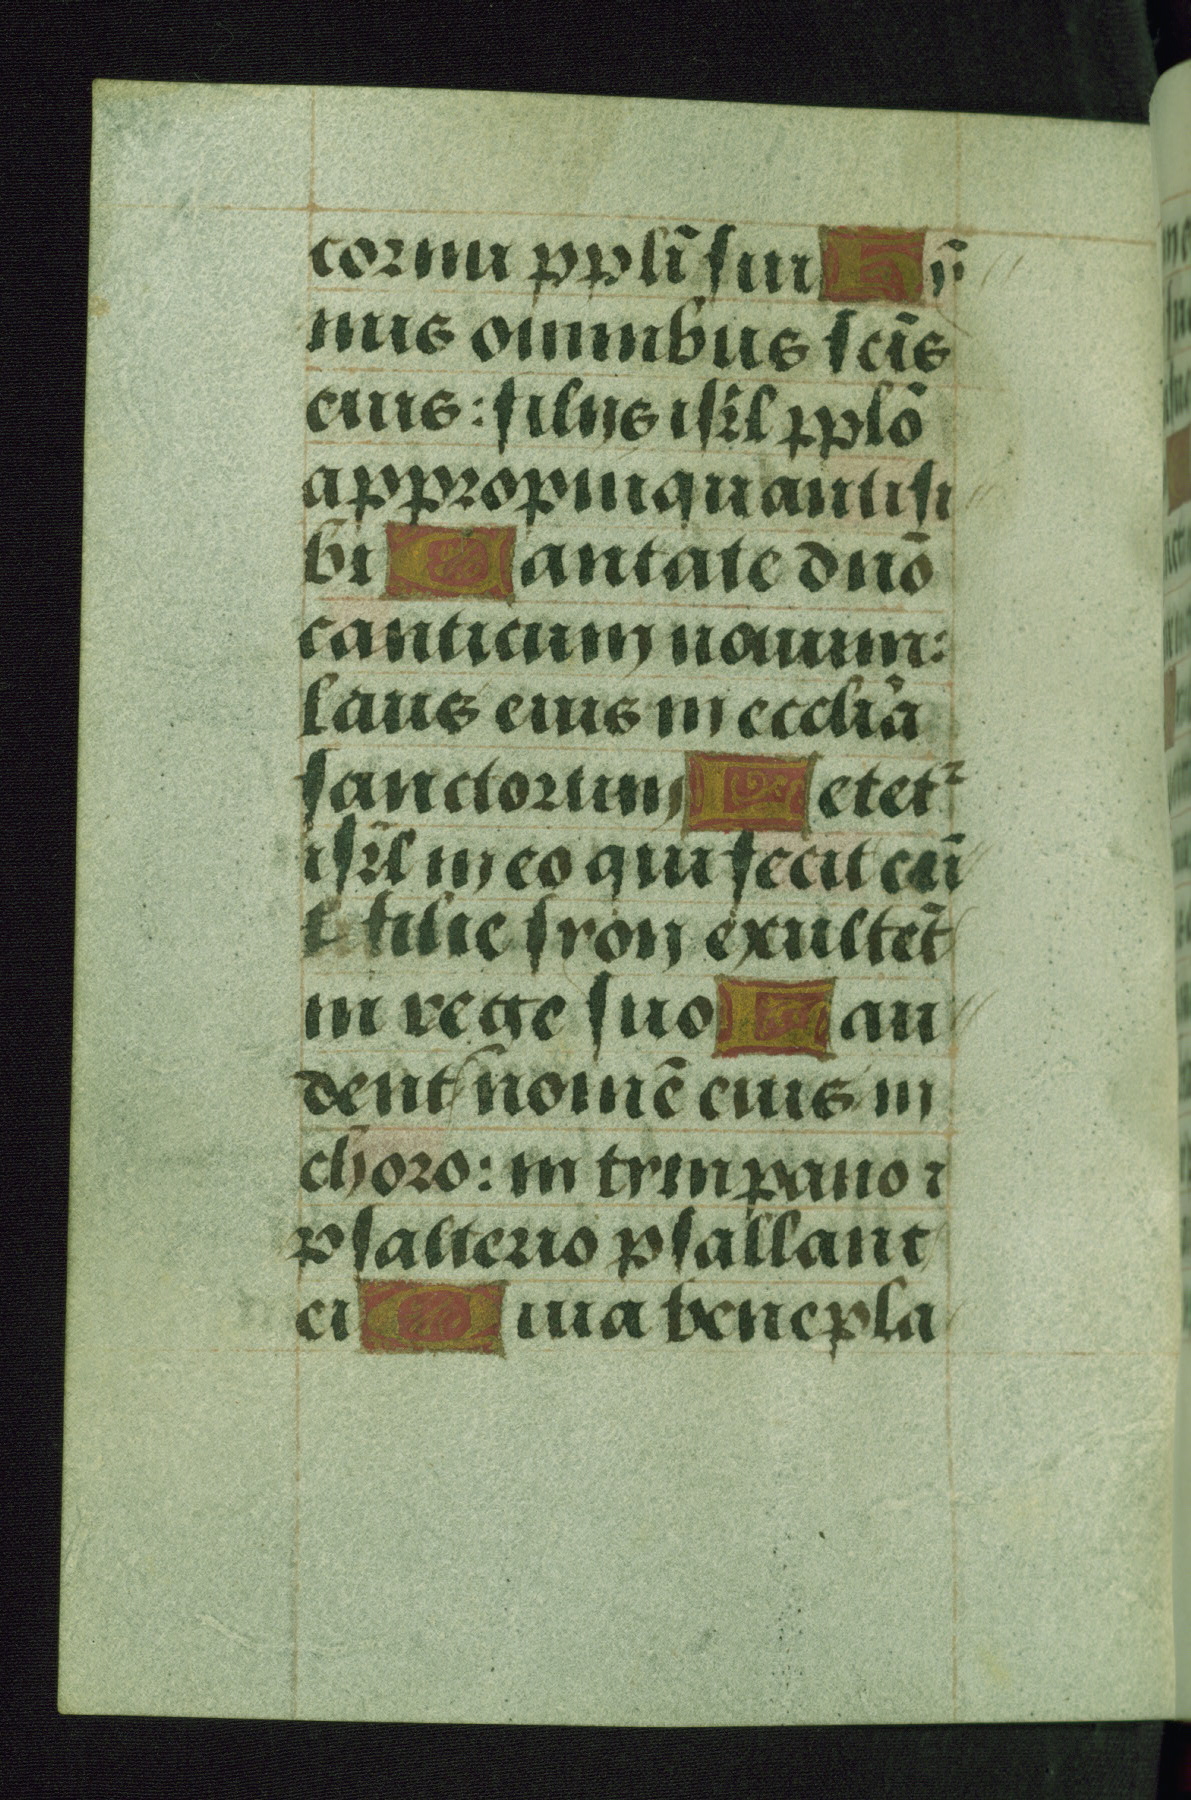 cornu ppl̄i sui Hȳ
nus omnibus sc̄is
eius: filiis isr̄l pplō
appropinquanti si
bi Cantate dn̄o
canticum nouum:
laus eius in eccl̄ia
sanctorum Letet²
isr̄l in eo qui fecit eū
t filie syon exultēt
in rege suo Lau
dent nomē eius in
choro: in tympano ⁊
psalterio psallant
ei Quia benepla